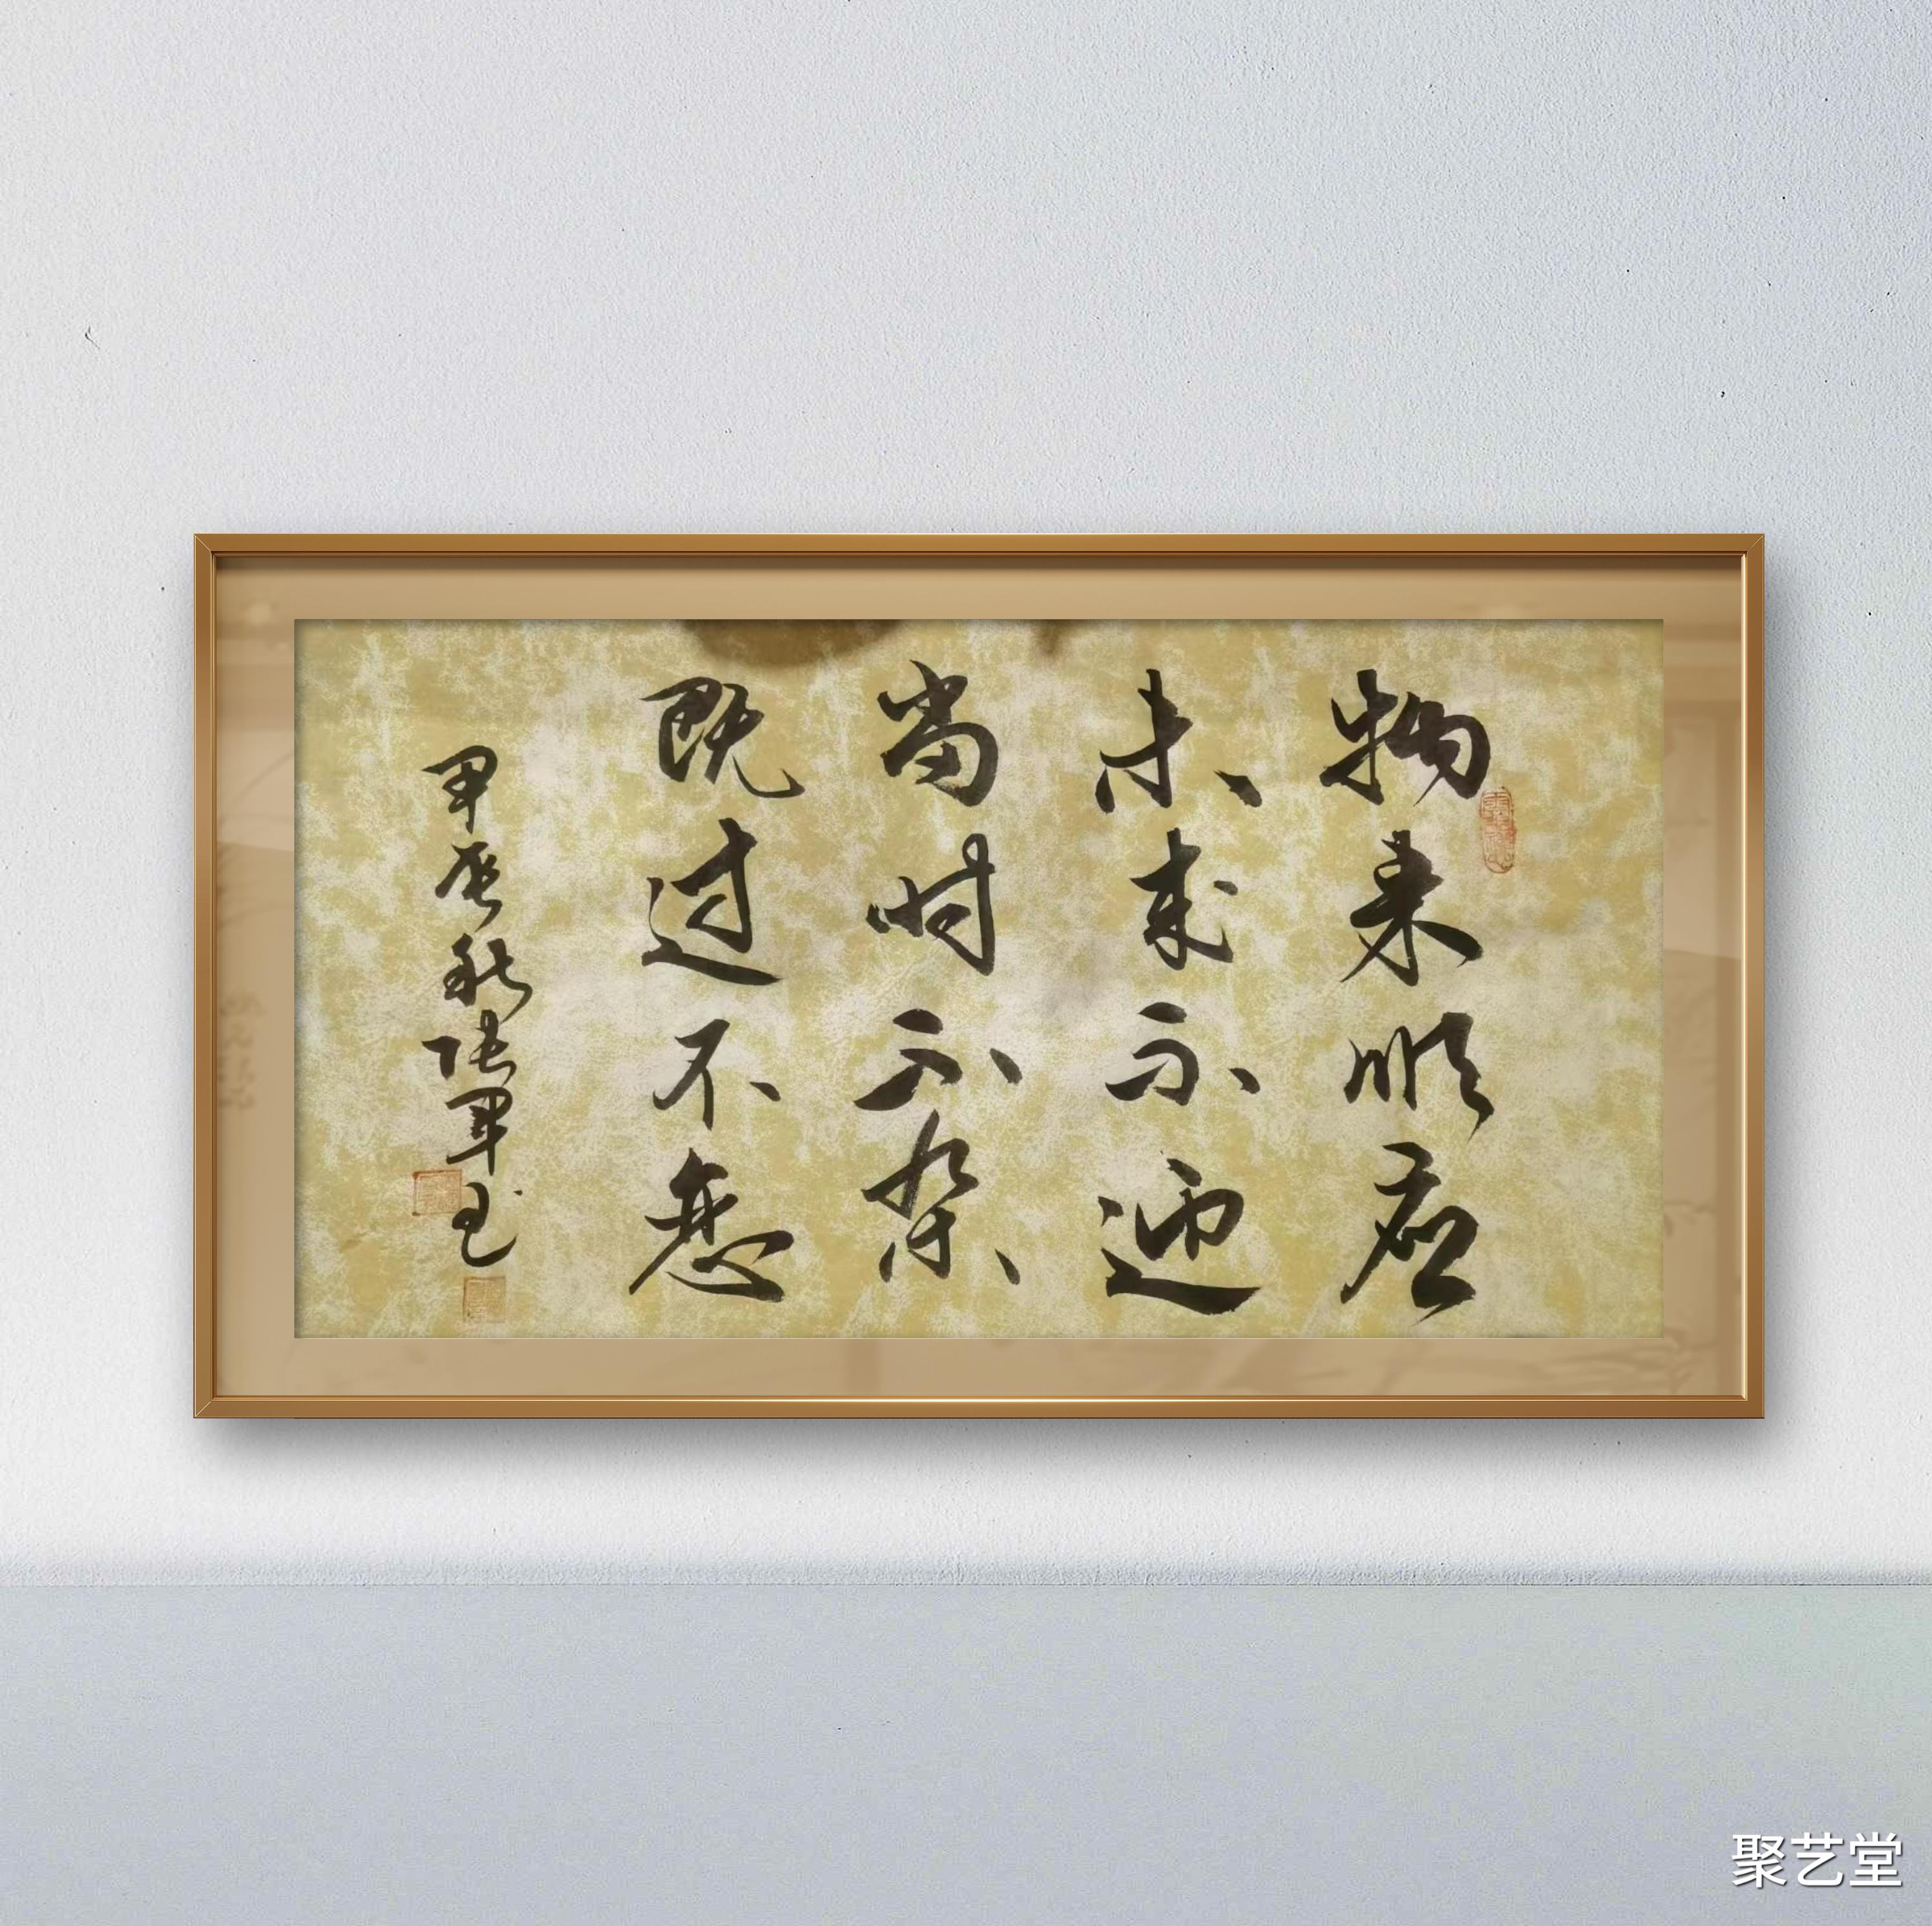 物来顺应
未来不迎
当时不杂
既过不恋
甲辰秋张军书
聚艺堂